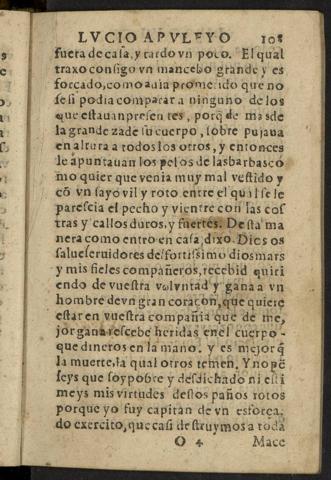 LVCIO APVLEYO 108
fuera de casa, y tardo vn poco. El qual
traxo consigo vn mancebo grande y es
forçado, como auia prometido que no
se si podia comparar a ninguno de los
que estauan presen tes, porq̃ de mas de
la grande zade su cuerpo, sobre pujaua
en altura a todos los otros, y entonces
le apuntauan los pelos de las barbas co
mo quier que venia muy mal vestido y
cõ vn sayo vil y roto entre el qual se le
parescia el pecho y vientre con las cos
tras y callos duros, y fuertes. De sta ma
nera como entro en casa, dixo. Dios os
salue seruidores del fortissimo dios mars
y mis fieles compañeros, recebid quiri
endo de vuestra voluntad y gana a vn
hombre de vn gran coraçon, que quiere
estar en vuestra compañia que de me,
jor gana rescebe heridas en el cuerpo -
que dineros en la mano. y es mejorq̃
la muerte, la qual otros temen. Y no pẽ
seys que soy pobre y desdichado ni esti
meys mis virtudes destos paños rotos
porque yo fuy capitan de vn esforça,
do exercito, que casi destruymos a toda
O 4 Mace